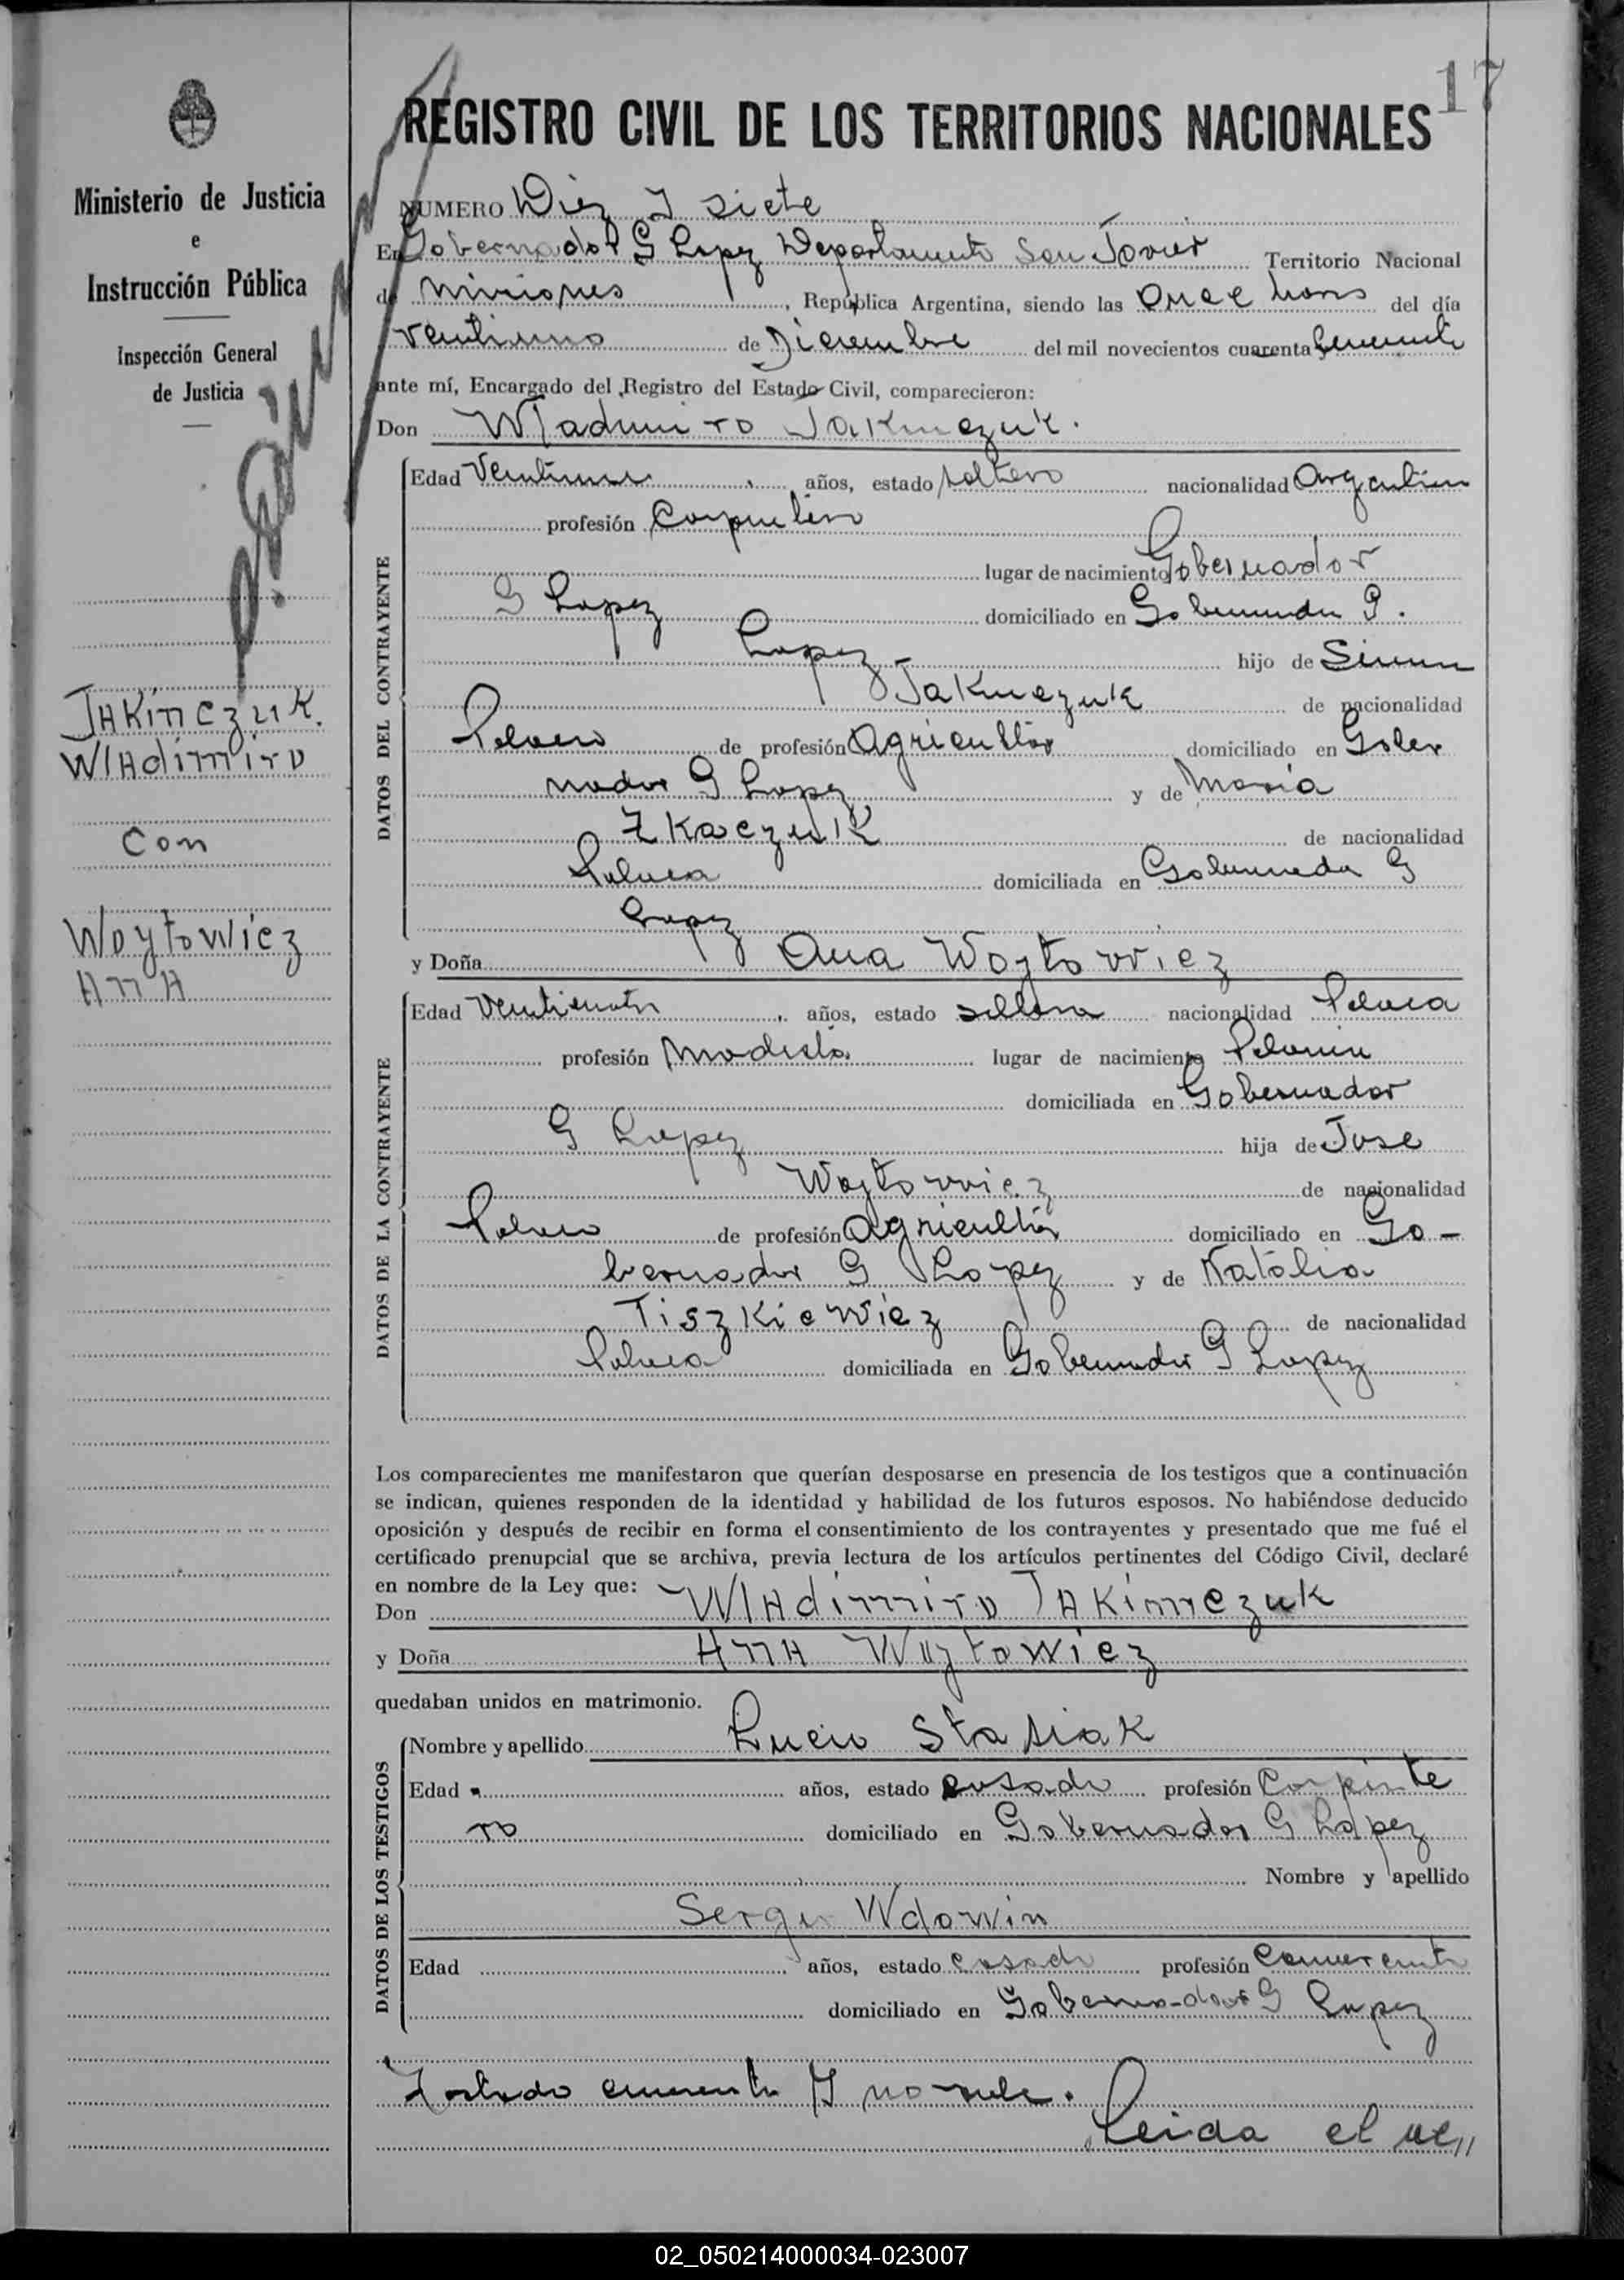 17
Ministerio de Justicia
e
Instrucción Pública
Inspección General
de Justicia
JAKimczuk.
WlAdimiro
Con
Woytowicz
AnnA
REGISTRO CIVIL DE LOS TERRITORIOS NACIONALES
NUMERO Diez Y siete
En Gobernador G Lopez Departamento San Javier Territorio Nacional
de Misiones, República Argentina, siendo las Once horas del día
ventiuno de Diciembre del mil novecientos cuarenta
ante mí, Encargado del Registro del Estado Civil, comparecieron:
Don Wladimiro Jakimczuk.
Edad Ventiuno años, estado soltero nacionalidad Argentino
profesión Carpintero
lugar de nacimiento Gobernador
G Lopez domiciliado en Gobernador G.
Lopez hijo de Simon
Jakimczuk de nacionalidad
Polaco de profesión Agricultor domiciliado en Gober
nador G Lopez y de Maria
Tkaczuk de nacionalidad
Polaca domiciliada en Gobernador G
Lopez
y Doña Ana Woytowicz
Edad Venticuatro años, estado soltera nacionalidad Polaca
profesión Modista lugar de nacimiento Polonia
domiciliada en Gobernador
G Lopez hija de Jose
Woytowicz de nacionalidad
Polaco de profesión Agricultor domiciliado en Go-
bernador G Lopez y de Natalia
Tiszkiewicz de nacionalidad
Polaca domiciliada en Gobernador G Lopez
DATOS DEL CONTRAYENTE
DATOS DE LA CONTRAYENTE
Los comparecientes me manifestaron que querían desposarse en presencia de los testigos que a continuación
se indican, quienes responden de la identidad y habilidad de los futuros esposos. No habiéndose deducido
oposición y después de recibir en forma el consentimiento de los contrayentes y presentado que me fué el
certificado prenupcial que se archiva, previa lectura de los artículos pertinentes del Código Civil, declaré
en nombre de la Ley que:
Don WlAdimiro JAKimczuk
y Doña AnnA Woytowicz
quedaban unidos en matrimonio.
DATOS DE LOS TESTIGOS
Nombre y apellido Lucio Stasiak
Edad años, estado casado profesión Carpinte
ro domiciliado en Gobernador G Lopez
Nombre y apellido
Sergio Wdowin
Edad años, estado casado profesión Comerciante
domiciliado en Gobernador G Lopez
Testado cuarenta Y no vale.
Leida el ac,,
02_050214000034-023007